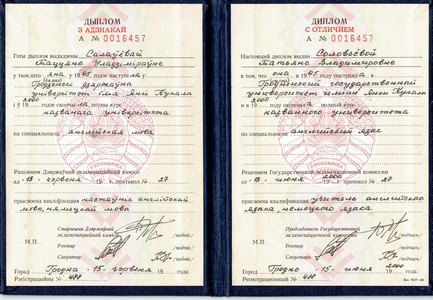 ДЫПЛОМ
З АДЗНАКАЙ
А № 0016457
Гэты дыплом выдадзены Салаўёвай
Таццяне Уладзіміраўне
у тым, што яна у 1995 годзе паступіла у
Гродзенскі дзяржаўны
універсітэт імя Янкі Купалы
2000
і у 19 годзе скончыла поўны курс
названага універсітэта
па спецыяльнасці
английская мова
Рашэннем Дзяржаўнай экзаменацыйнай камісіі
ад "13" чэрвеня пратакол № 27
прысвоена кваліфікацыя настаўнік англійскай
мовы, нямецкай мовы
Старшыня Дзяржаўнай
экзаменацыйнай камісіі /подпіс/
М.П.
Рэктар /подпіс/
Сакратар /подпіс/
Горад Гродна 15 чэрвеня года
Рэгістрацыйны № 488
ДИПЛОМ
С ОТЛИЧИЕМ
А № 0016457
Настоящий диплом выдан Соловьёвой
Татьяне Владимировне
в том, что она в 1995 году поступила в
Гродненский государственный
университет имени Янки Купалы
2000
и в 19 году окончила полный курс
названного университета
по специальности
английский язык
Решением Государственной экзаменационной комиссии
от "13" июня 2000 протокол № 27
присвоена квалификация учитель английского
языка, немецкого языка
Председатель Государственной
экзаменационной комиссии /подпись/
М.П.
Ректор /подпись/
Секретарь /подпись/
Город Гродно 15 июня 2000 года
Регистрационный № 488